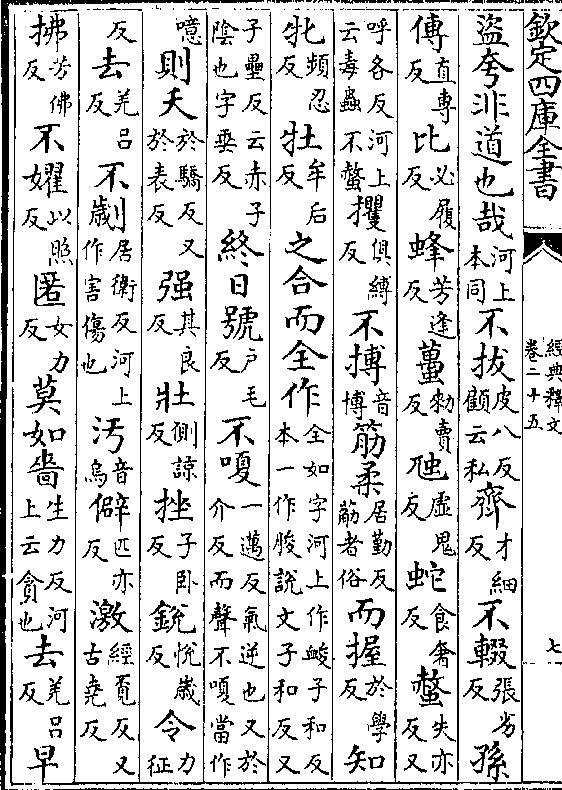 欽定四庫全書 經典釋文卷二十五 七
盜夸非道也哉河上本同不拔皮八反顧云私齊才細反不輟張劣反孫
傳直專反比必履反蜂芳逢反蠆勑賣反虺虛鬼反蛇食奢反螫失亦反又
呼各反河上云毒蟲不螫攫俱縛反不搏音博筋柔居勤反觔者俗而握於學反知
牝頻忍反牡牟后反之合而全作全如字河上作䘒子和反本一作朘說文子和反又
子壘反云赤子陰也字垂反終日號户毛反不嗄一邁反氣逆也又於介反而聲不嗄當作
噫則夭於驕反又於表反强其良反壯側諒反挫子卧反銳悅歲反令力征
反去羌吕反不劌居衛反河上作害傷也汚音烏僻匹亦反激經覓反又古堯反
拂芳佛反不燿以照反匿女力反莫如嗇生力反河上云貪也去羌吕反早